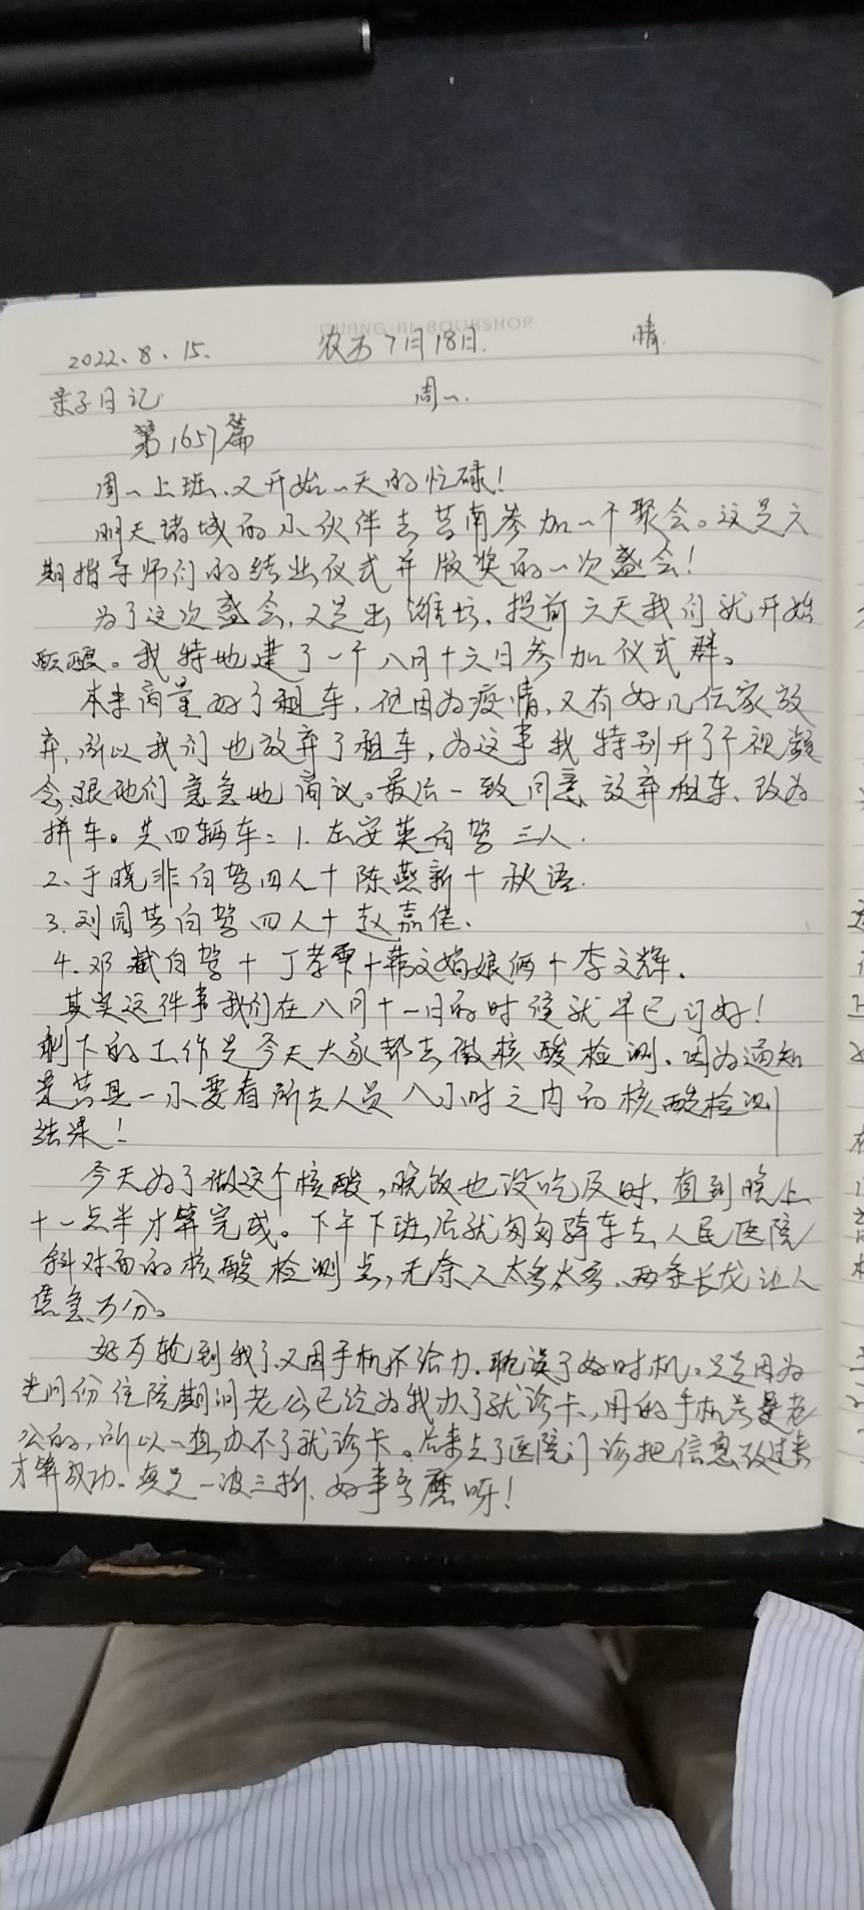 GUANG AI BOOKSHOP
2022、8、15. 农历7月18日. 晴.
亲子日记 周一.
第1657篇
周一上班、又开始一天的忙碌！
明天诸城的小伙伴去莒南参加一个聚会。这是六
期指导师们的结业仪式并颁奖的一次盛会！
为了这次盛会，又是出潍坊、提前六天我们就开始
酝酿。我特地建了一个八月十六日参加仪式群。
本来商量好了租车，但因为疫情，又有好几位家放
弃，所以我们也放弃了租车，为这事我特别开了个视频
会，跟他们竟急地商议。最后一致同意放弃租车、改为
拼车。共四辆车：1. 左安英自驾三人.
2、于晓非自驾四人＋陈燕新＋秋语.
3. 刘园芳自驾四人＋赵嘉佳、
4. 邓 自驾＋丁孝 ＋韩文娟娘俩＋李文辉.
其实这件事我们在八月十一日的时候就早已订好！
剩下的工作是今天大家都去做核酸检测、因为通知
是莒县一小要看所去人员八小时之内的核酸检测
结果！
今天为了做这个核酸，晚饭也没吃及时、直到晚上
十一点半才算完成。下午下班后就匆匆骑车去人民医院
斜对面的核酸检测点，无奈人太多太多、两条长龙让人
焦急万分。
好歹轮到我了、又因手机不给力、耽误了好时机。只是因为
七月份住院期间老公已经为我办了就诊卡，用的手机号是老
公的，所以一直办不了就诊卡。后来去了医院门诊把信息改过来
才算成功。真是一波三折、好事多磨呀！